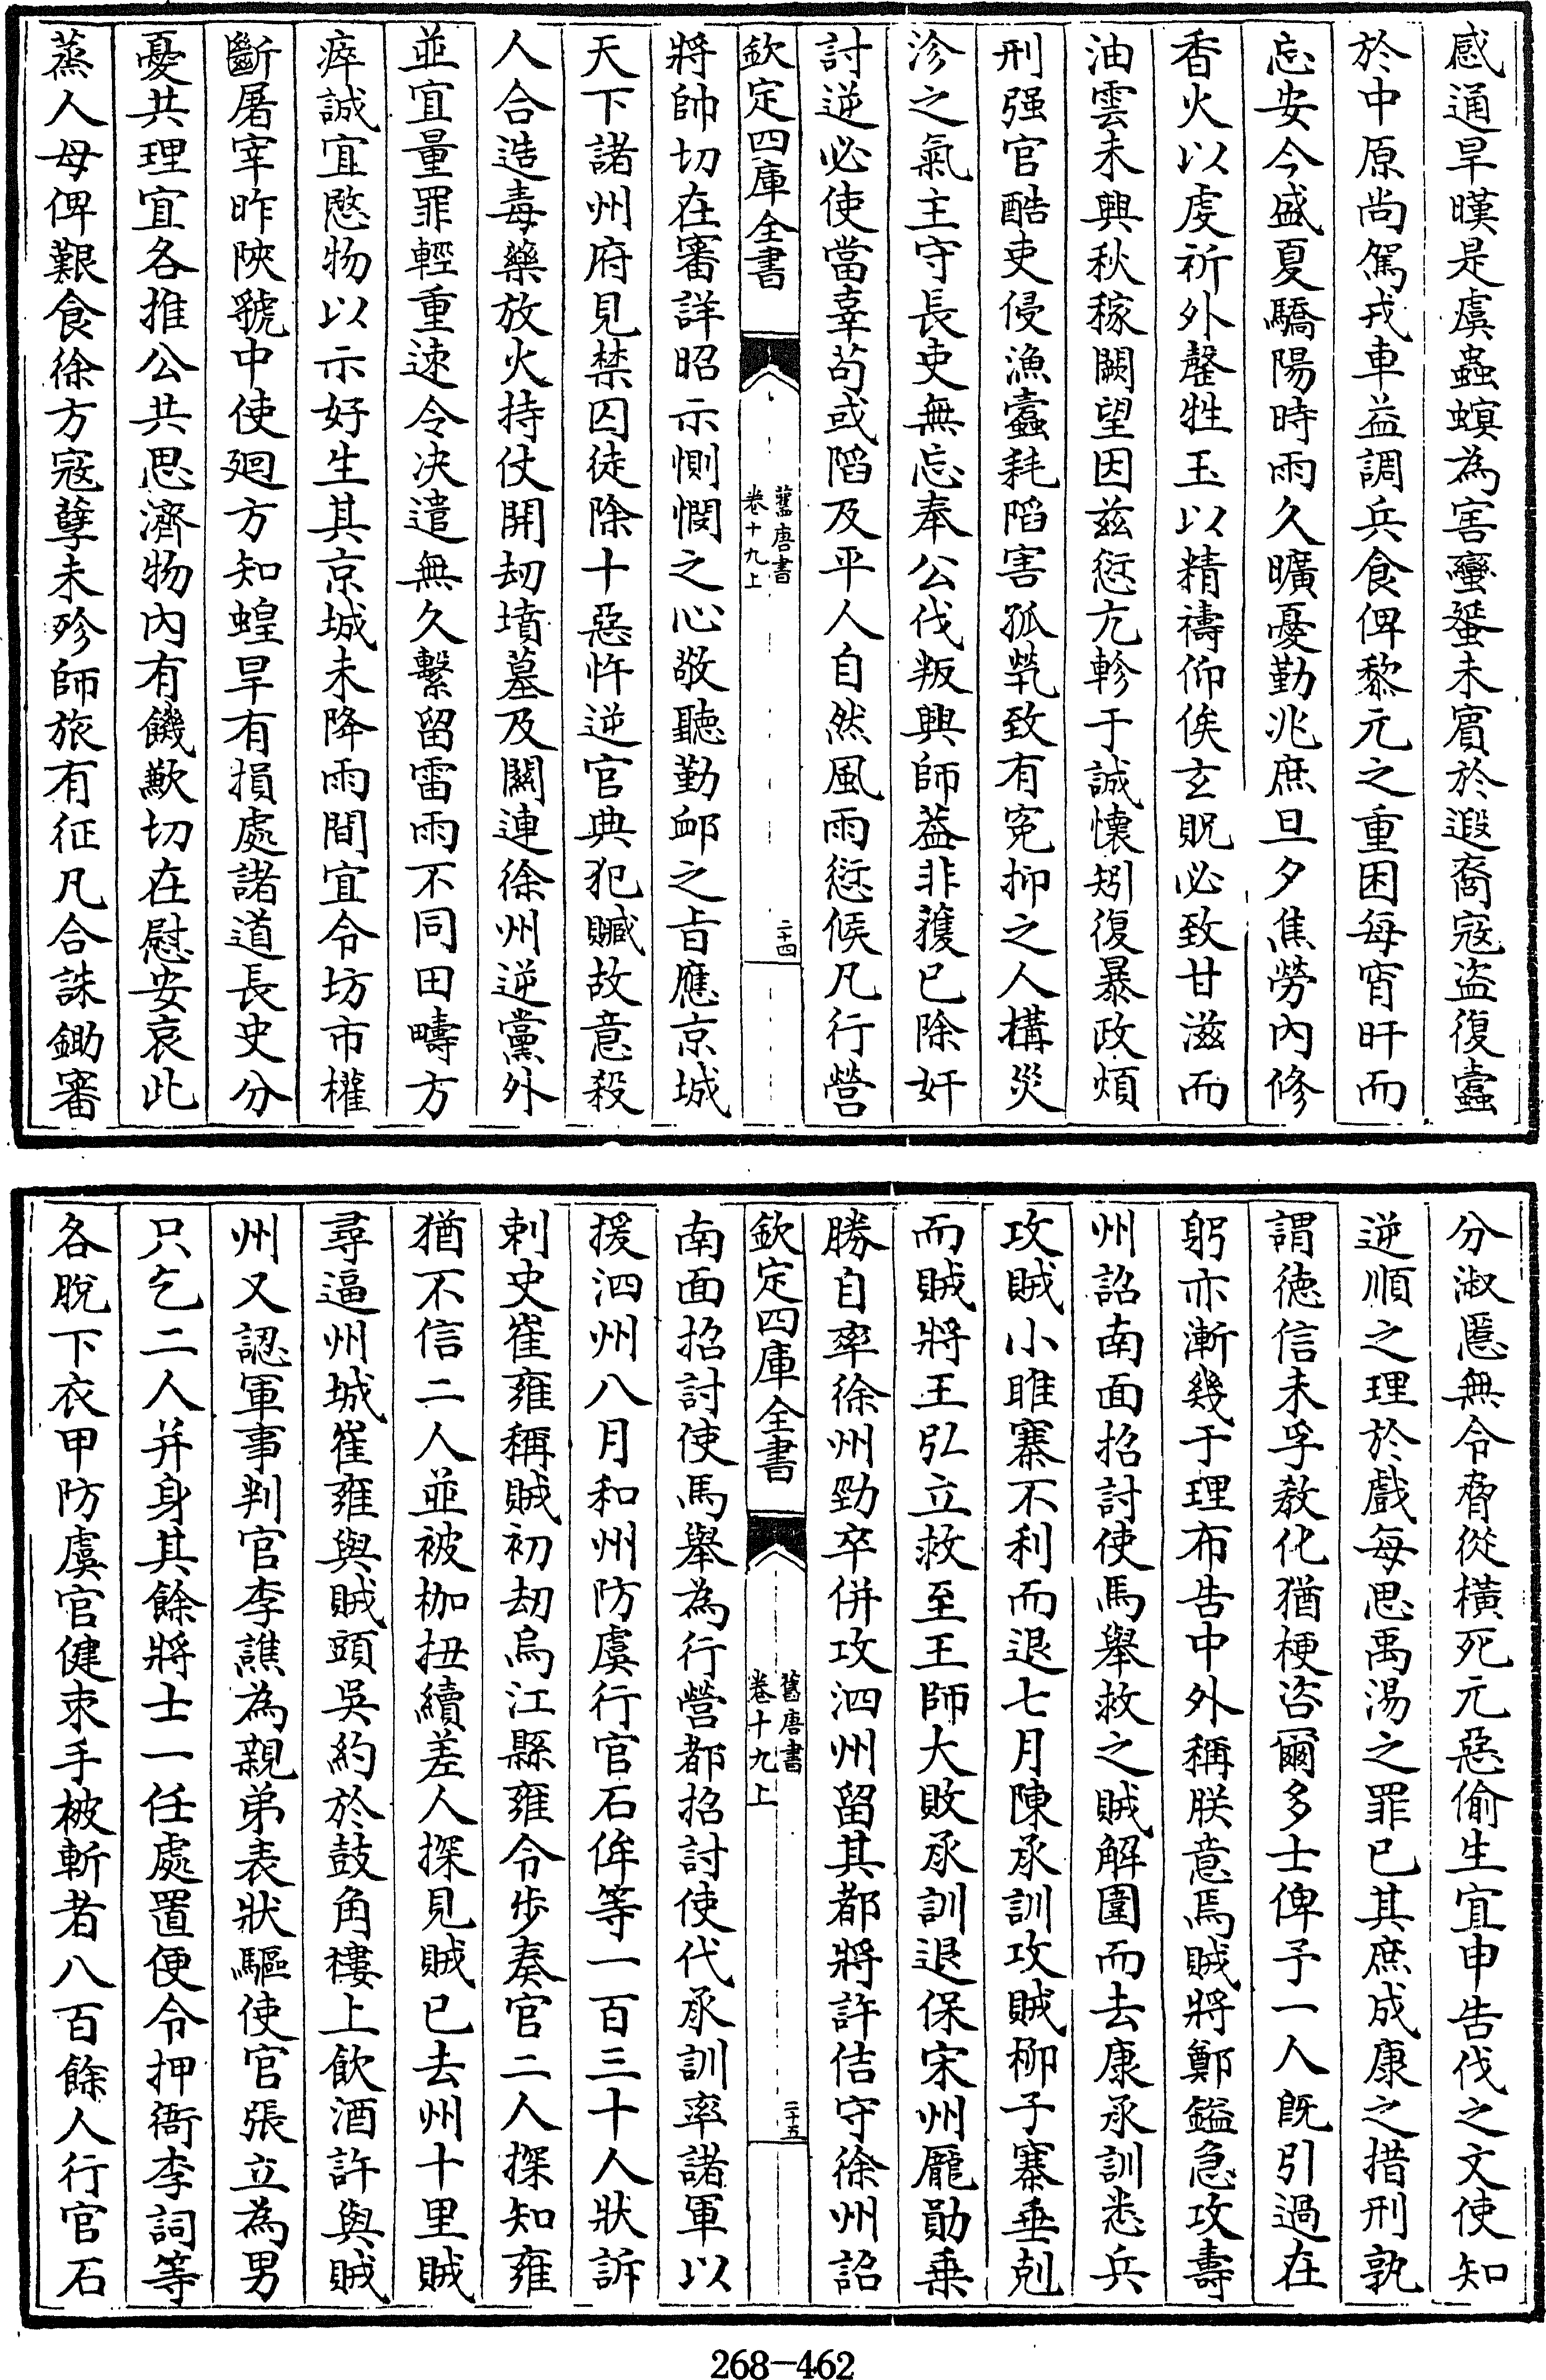 感通旱暵是虞蟲螟為害蠻蜑未賓於遐裔寇盗復蠹
於中原尚駕戎車益調兵食俾黎元之重困每宵旰而
忘安今盛夏驕陽時雨久曠憂勤兆庶旦夕焦勞內修
香火以虔祈外罄牲玉以精禱仰俟玄貺必致甘滋而
油雲未興秋稼闕望因兹愆亢軫于誠懷矧復暴政煩
刑强官酷吏侵漁蠹耗陷害孤煢致有寃抑之人構災
沴之氣主守長吏無忘奉公伐叛興師葢非獲已除奸
討逆必使當辜苟或陷及平人自然風雨愆候凡行營
欽定四庫全書
舊唐書
卷十九上
二十四
將帥切在審詳昭示惻憫之心敬聽勤䘏之㫖應京城
天下諸州府見禁囚徒除十惡忤逆官典犯贓故意殺
人合造毒藥放火持仗開刼墳墓及關連徐州逆黨外
並宜量罪輕重速令决遣無久繫留雷雨不同田疇方
瘁誠宜愍物以示好生其京城未降雨間宜令坊市權
斷屠宰昨陜虢中使廻方知蝗旱有損處諸道長史分
憂共理宜各推公共思濟物內有饑歉切在慰安哀此
蒸人毋俾艱食徐方寇孽未殄師旅有征凡合誅鋤審
分淑慝無令脅從横死元惡偷生宜申告伐之文使知
逆順之理於戲每思禹湯之罪已其庶成康之措刑孰
謂德信未孚教化猶梗咨爾多士俾予一人既引過在
躬亦漸幾于理布告中外稱朕意焉賊將鄭鎰急攻壽
州詔南面招討使馬舉救之賊解圍而去康承訓悉兵
攻賊小睢寨不利而退七月陳承訓攻賊柳子寨垂剋
而賊將王弘立救至王師大敗承訓退保宋州龎勛乗
勝自率徐州勁卒併攻泗州留其都將許佶守徐州詔
欽定四庫全書
舊唐書
卷十九上
二十五
南面招討使馬舉為行營都招討使代承訓率諸軍以
援泗州八月和州防虞行官石侔等一百三十人狀訴
刺史崔雍稱賊初刼烏江縣雍令步奏官二人探知雍
猶不信二人並被枷扭續差人探見賊已去州十里賊
尋逼州城崔雍與賊頭吳約於鼓角樓上飲酒許與賊
州又認軍事判官李譙為親弟表狀驅使官張立為男
只乞二人并身其餘將士一任處置便令押衙李詞等
各脱下衣甲防虞官健束手被斬者八百餘人行官石
268-462